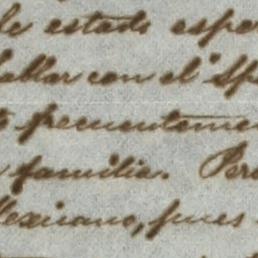 de estado espe
hablar con el Sp
frecuenteme
familia. Per
Mexicano, pues